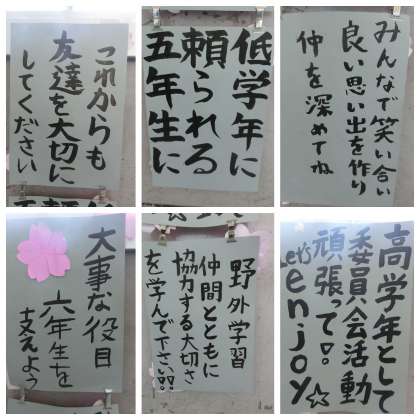 これからも
友達を大切に
してください
低学年に
頼られる
五年生に
みんなで笑い合い
良い思い出を作り
仲を深めてね
大事な役目
六年生を
支えよう
野外学習
仲間とともに
協力する大切さ
を学んで下さい!!
高学年として
委員会活動
頑張って!!
Let's
enjoy☆